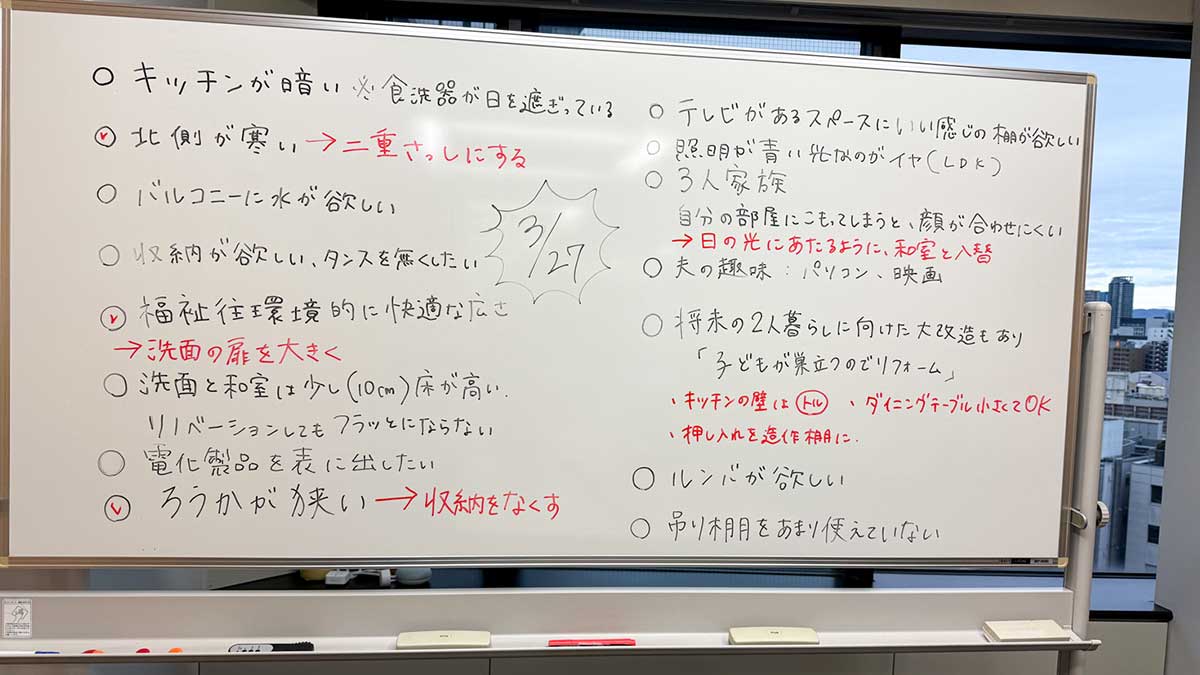 ○ キッチンが暗い ※食洗器が日を遮ぎっている
○ 北側が寒い → 二重さっしにする
○ バルコニーに水が欲しい
○ 収納が欲しい、タンスを無くしたい
○ 福祉住環境的に快適な広さ
→ 洗面の扉を大きく
○ 洗面と和室は少し(10cm)床が高い.
リノベーションしてもフラッとにならない
○ 電化製品を表に出したい
○ ろうかが狭い → 収納をなくす
3/27
○ テレビがあるスペースにいい感じの棚が欲しい
○ 照明が青い光なのがイヤ(LDK)
○ 3人家族
自分の部屋にこもってしまうと、顔が合わせにくい
→ 日の光にあたるように、和室と入替
○ 夫の趣味:パソコン、映画
○ 将来の2人暮らしに向けた大改造もあり
「子どもが巣立つのでリフォーム」
、キッチンの壁はトル 、ダイニングテーブル小さくてOK
、押し入れを造作棚に.
○ ルンバが欲しい
○ 吊り棚をあまり使えていない